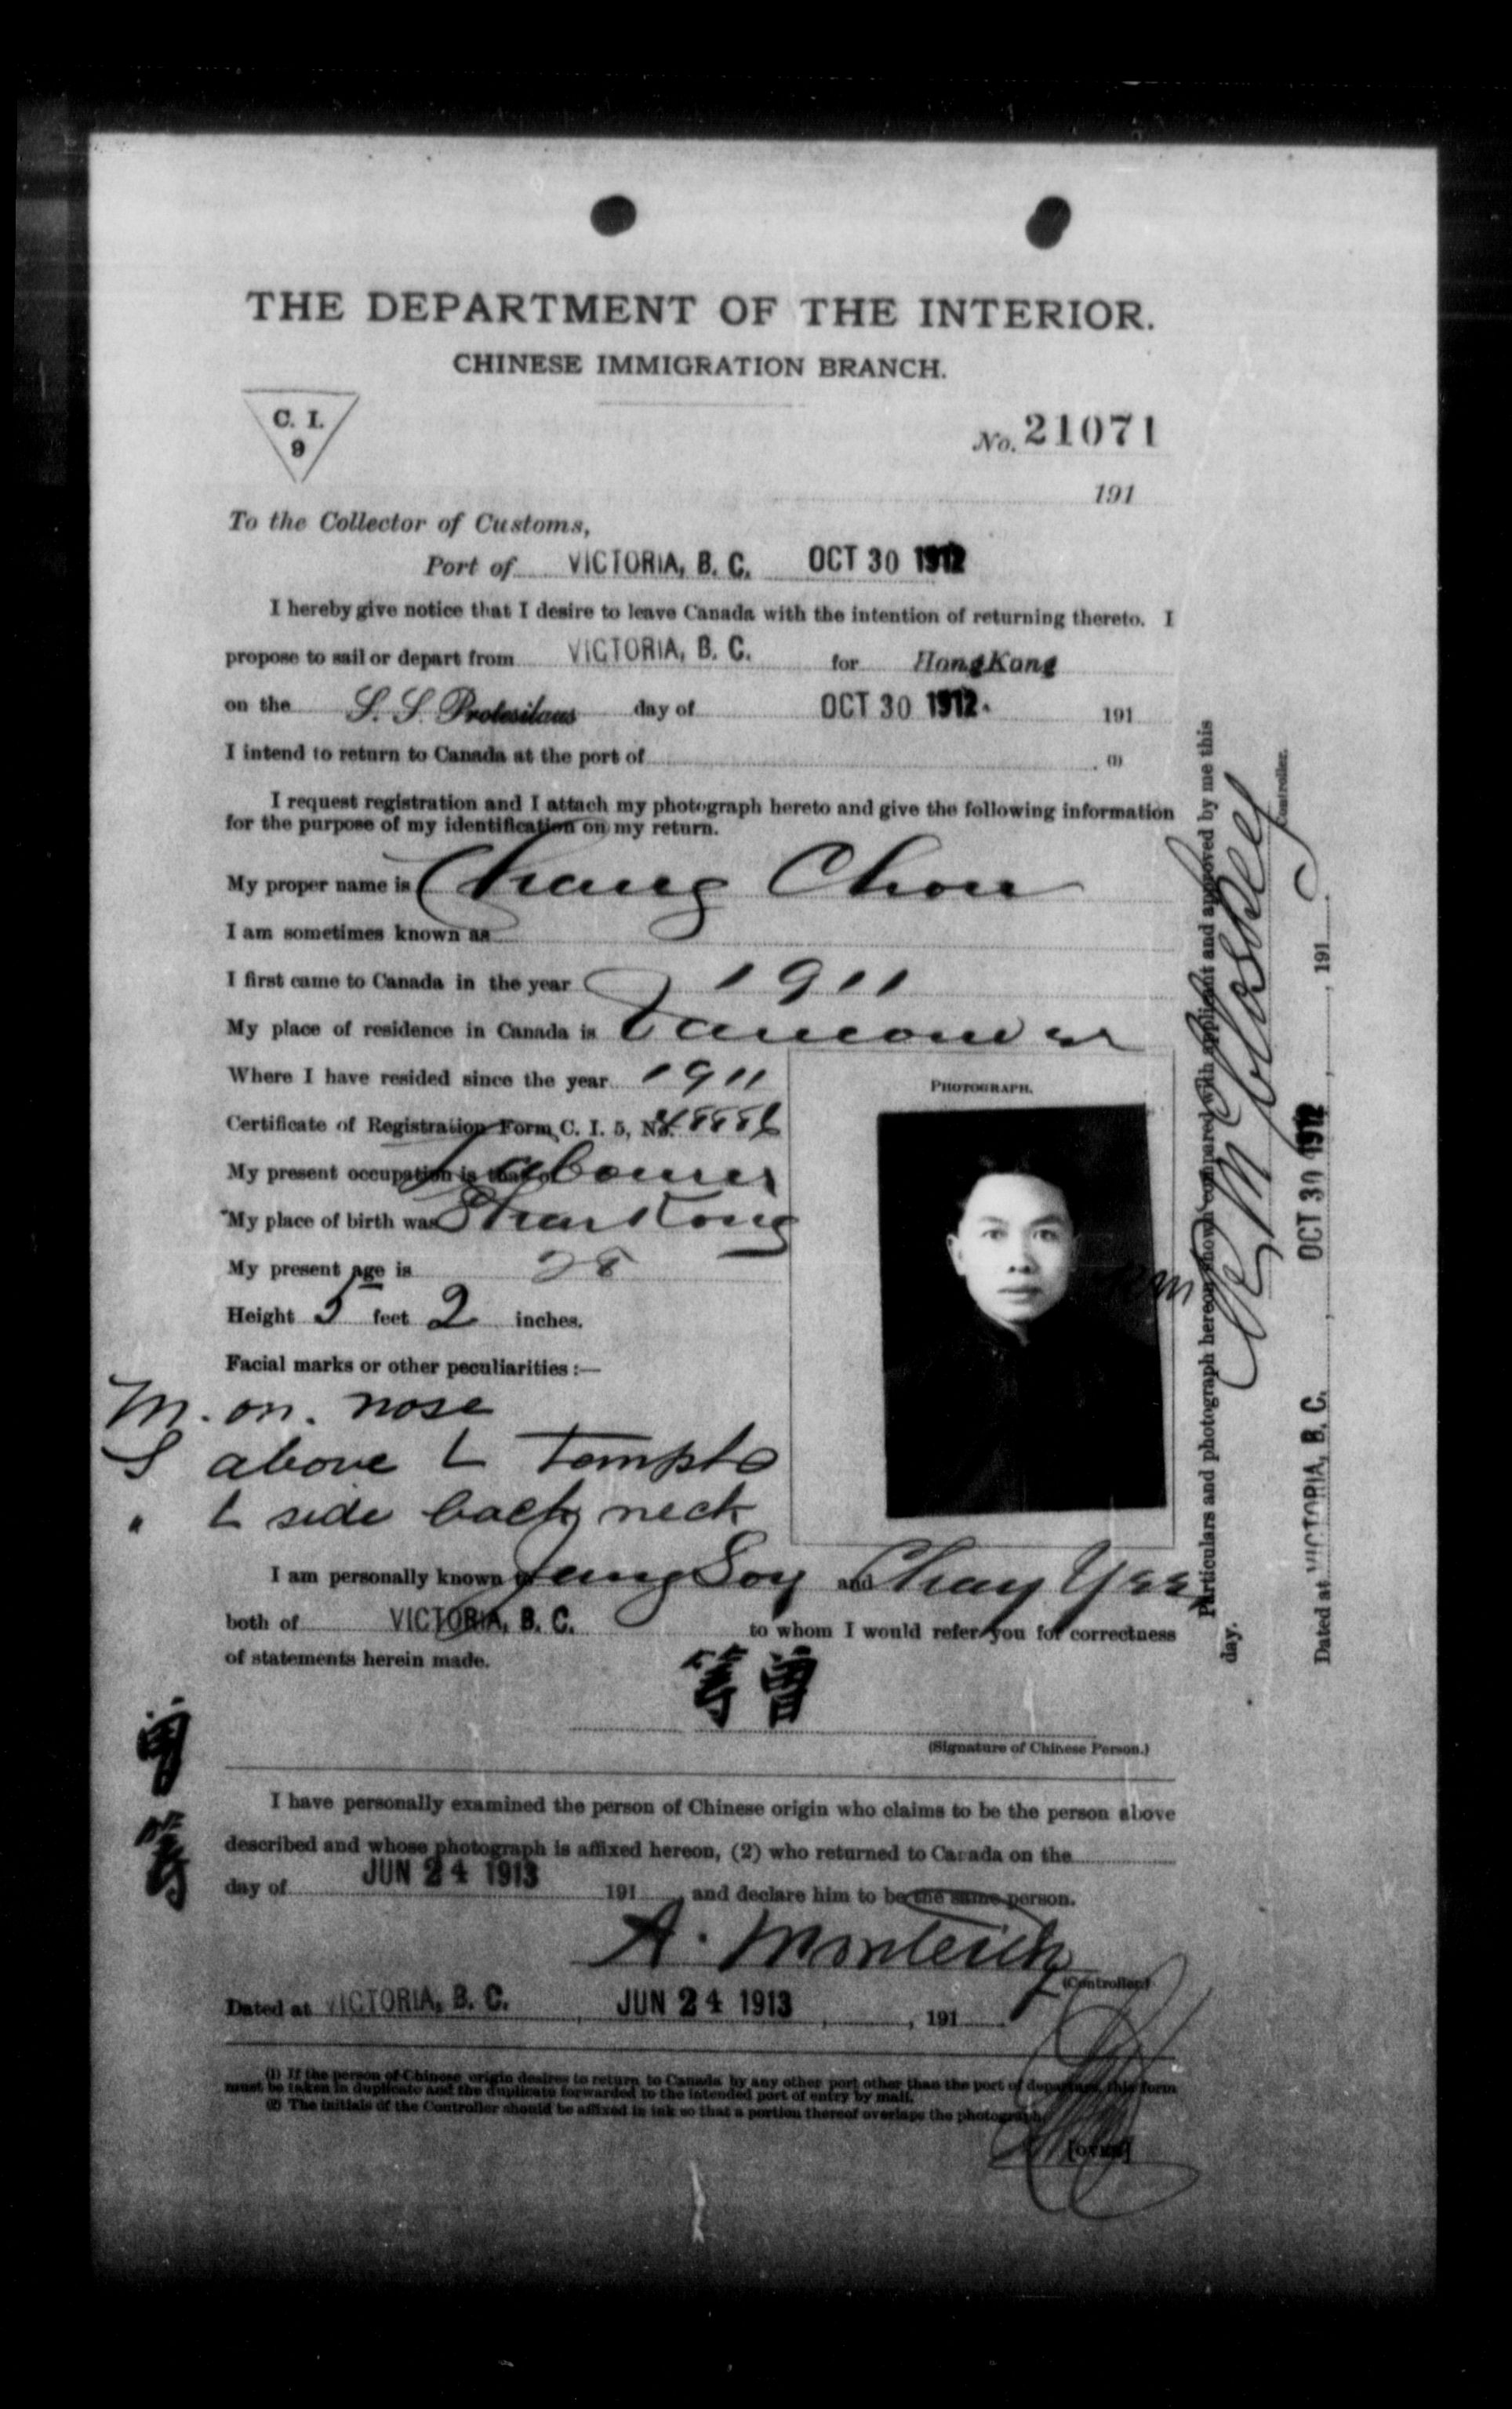 THE DEPARTMENT OF THE INTERIOR.
CHINESE IMMIGRATION BRANCH.
C. I.
9
No. 21071
191
To the Collector of Customs,
Port of VICTORIA, B. C. OCT 30 1912
I hereby give notice that I desire to leave Canada with the intention of returning thereto. I
propose to sail or depart from VICTORIA, B. C. for HongKong
on the S. S. Protesilaus day of OCT 30 1912. 191
I intend to return to Canada at the port of . (1)
I request registration and I attach my photograph hereto and give the following information
for the purpose of my identification on my return.
My proper name is Chang Chou
I am sometimes known as
I first came to Canada in the year 1911
My place of residence in Canada is Vancouver
Where I have resided since the year 1911
PHOTOGRAPH.
Certificate of Registration Form C. I. 5, No.
My present occupation is that of Labourer
My place of birth was
My present age is 28
Height 5 feet 2 inches.
Facial marks or other peculiarities :—
M. on. nose
S above L Temple
" L side back neck
I am personally known to Soy and Chay Yee
both of VICTORIA, B. C. to whom I would refer you for correctness
of statements herein made.
等曾
(Signature of Chinese Person.)
曾等
I have personally examined the person of Chinese origin who claims to be the person above
described and whose photograph is affixed hereon, (2) who returned to Canada on the
day of JUN 24 1913 191 , and declare him to be the same person.
A. Monteith
(Controller)
Dated at VICTORIA, B. C. , JUN 24 1913 , , 191 .
(1) If the person of Chinese origin desires to return to Canada by any other port other than the port of departure, this form
must be taken in duplicate and the duplicate forwarded to the intended port of entry by mail.
(2) The initials of the Controller should be affixed in ink so that a portion thereof overlaps the photograph.
[OVER]
Particulars and photograph hereon shown compared with applicant and approved by me this
day.
Controller.
Dated at VICTORIA, B. C. , OCT 30 1912 , 191 .